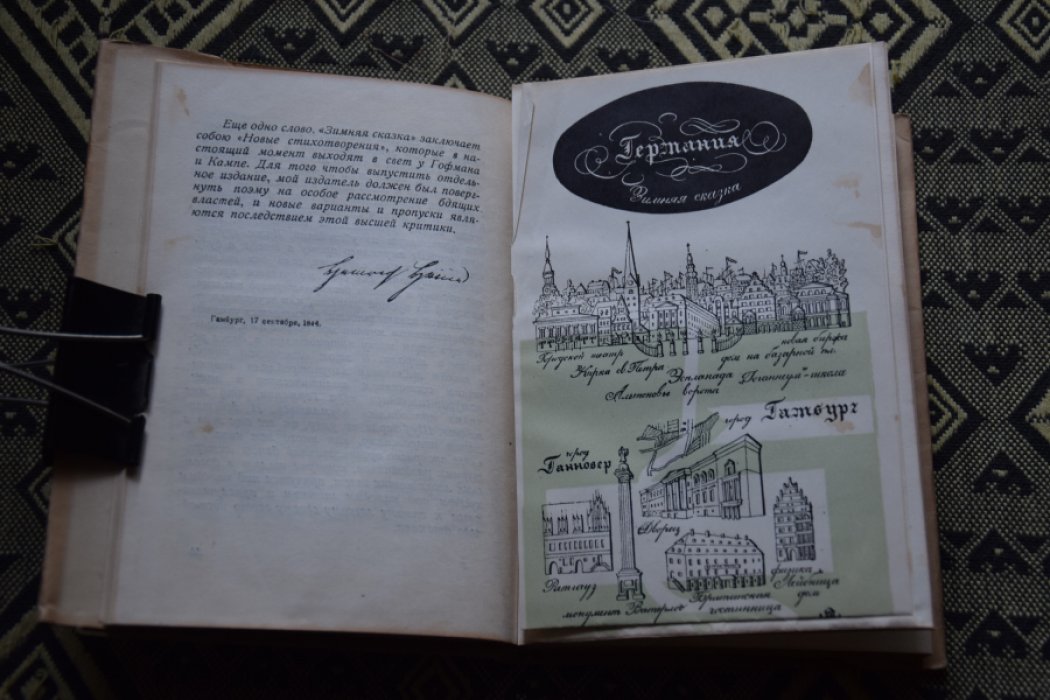 Еще одно слово. «Зимняя сказка» заключает
собою «Новые стихотворения», которые в на-
стоящий момент выходят в свет у Гофмана
и Кампе. Для того чтобы выпустить отдель-
ное издание, мой издатель должен был поверг-
нуть поэму на особое рассмотрение бдящих
властей, и новые варианты и пропуски явля-
ются последствием этой высшей критики.
Гамбург, 17 сентября, 1844.
Германия
Зимняя сказка
Городской театр
Кирка св. Петра
Альтоновы ворота
Эспланада
новая биржа
дом на базарной пл.
"Иоганнеум"-школа
город Гамбург
город
Ганновер
Дворец
Ратгауз
монумент Ватерлоо
Британская
гостинница
физика Лейбница
дом